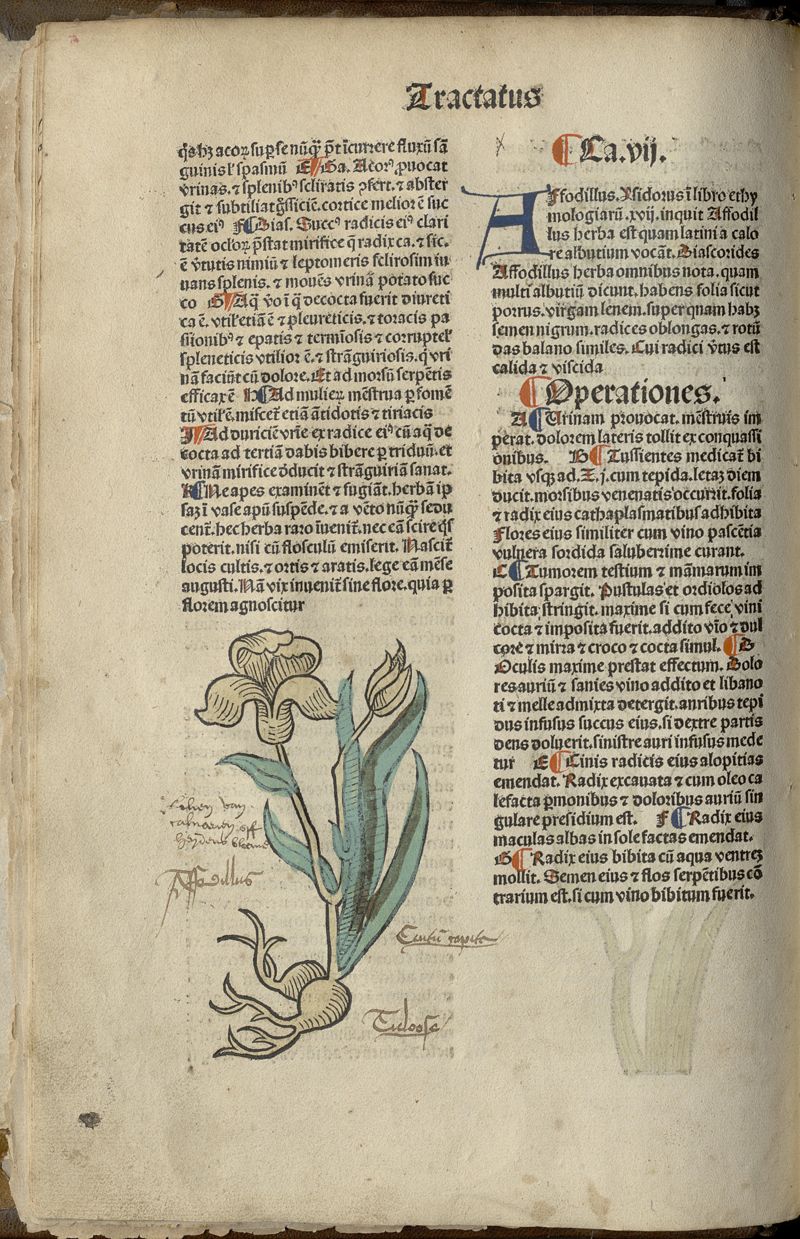 Tractatus
q̃ hz acoꝝ sup se nũq̃ p̃t ĩcurrere fluxũ sã
guinis ł spasmũ E Ga. Acorꝰ ꝓuocat
vrinas. ⁊ splenibꝰ scliratis ꝓfert. ⁊ abster
git ⁊ subtiliat g̃ssiciẽ. cortice meliorẽ suc
cus eiꝰ F Dias. Succꝰ radicis eiꝰ clari
tatẽ ocloꝝ p̃stat mirifice q̃ radix ca. ⁊ sic.
ẽ v̓tutis nimiũ ⁊ leptomeris sclirosim iu
uans splenis. ⁊ mouẽs vrinã potato suc
co G Aq̃ vo ĩ q̃ decocta fuerit diureti
ca ẽ. vtił etiã ẽ ⁊ pleureticis. ⁊ toracis pa
ssionibꝰ ⁊ epatis ⁊ termĩosis ⁊ corrupteł
spleneticis vtilior ẽ. ⁊ strãguiriosis. q̃ vri
nã faciũt cũ dolore. Et ad morsũ serpẽtis
efficax ẽ H Ad mulieꝝ mẽstrua p fomẽ
tũ vtił ẽ. miscet̃ etiã ãtidotis ⁊ tiriacis
J Ad duriciẽ vrĩe ex radice eiꝰ cũ aq̃ de
cocta ad tertiã dabis bibere p triduũ. et
vrinã mirifice ꝺducit ⁊ strãguiriã sanat.
K Ne apes examinẽt ⁊ fugiãt. herbã ip
saꝫ ĩ vase apũ suspẽde. ⁊ a vẽto nũq̃ sedu
cent̃. hec herba raro ĩuenit̃. nec eã scire q̃s
poterit. nisi cũ flosculũ emiserit. Nascit̃
locis cultis. ⁊ ortis ⁊ aratis. lege eã mẽse
augusti. Nã vix inuenit̃ sine flore. quia p
florem agnoscitur
Affodillus
Centũ capita
¶ Ca. vij.
AFfodillus. Ysidorus ĩ libro ethy
mologiarũ. xvij. inquit Affodil
lus herba est quam latini a calo
re albutium vocãt. Diascorides
Affodillus herba omnibus nota. quam
multi albutiũ dicunt. habens folia sicut
porrus. virgam lenem. super quam habꝫ
semen nigrum. radices oblongas. ⁊ rotũ
das balano similes. Cui radici v̓tus est
calida ⁊ viscida
¶ Operationes.
A ¶ Vrinam prouocat. mẽstruis im
perat. dolorem lateris tollit ex conquassi
onibus. B ¶ Tussientes medicat̃ bi
bita vsqꝫ ad. Ʒ. j. cum tepida. letaꝫ diem
ducit. morsibus venenatis occurrit. folia
⁊ radix eius cathaplasmatibus adhibita
Flores eius similiter cum vino pascẽtia
vulnera sordida saluberime curant.
C ¶ Tumorem testium ⁊ mãmarum im
posita spargit. Pustulas et ordiolos ad
hibita stringit. maxime si cum fece vini
cocta ⁊ imposita fuerit. addito vĩo ⁊ dul
core ⁊ mirra ⁊ croco ⁊ cocta simul. ¶ D
Oculis maxime prestat effectum. Dolo
res auriũ ⁊ sanies vino addito et libano
ti ⁊ melle admixta detergit. auribus tepi
dus infusus succus eius. si dextre partis
dens doluerit. sinistre auri infusus mede
tur E ¶ Cinis radicis eius alopitias
emendat. Radix excauata ⁊ cum oleo ca
lefacta p̃monibus ⁊ doloribus auriũ sin
gulare presidium est. F ¶ Radix eius
maculas albas in sole factas emendat.
G ¶ Radix eius bibita cũ aqua ventreꝫ
mollit. Semen eius ⁊ flos serpẽtibus cõ
trarium est. si cum vino bibitum fuerit.